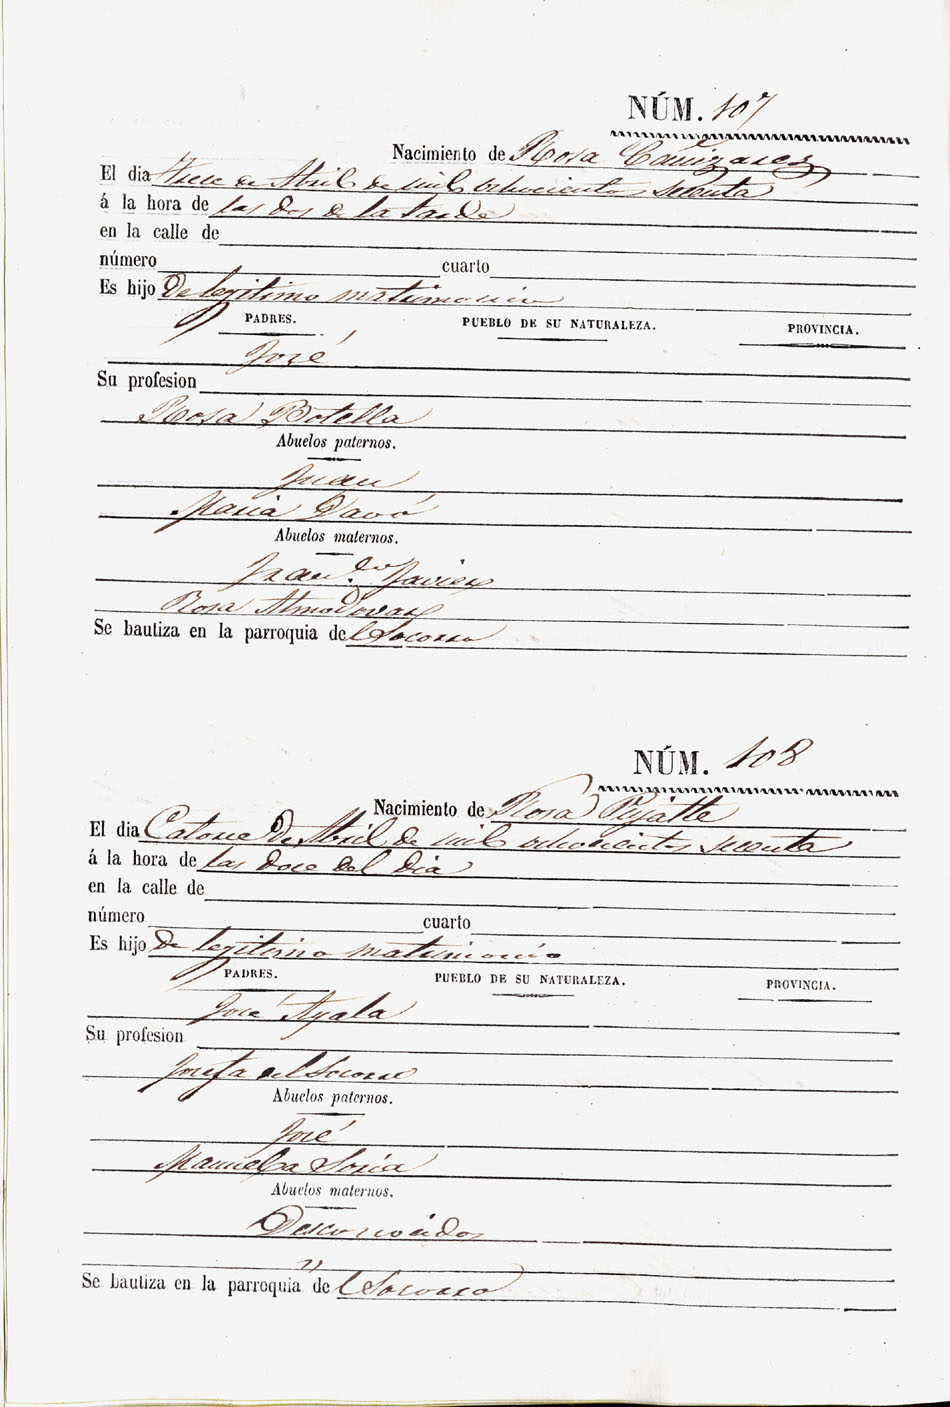 NÚM. 107
Nacimiento de Rosa Cañizares
El dia Trece de Abril de mil ochocientos secenta
á la hora de las dos de la tarde
en la calle de
número cuarto
Es hijo De legitimo matrimonio
PADRES. PUEBLO DE SU NATURALEZA. PROVINCIA.
José
Su profesion
Rosa Botella
Abuelos paternos.
Juan
Maria Davó
Abuelos maternos.
Javier
Rosa Almodovar
Se bautiza en la parroquia del Socorro
NÚM. 108
Nacimiento de Rosa
El dia Catorce De Abril de mil ochocientos secenta
á la hora de las doce del Dia
en la calle de
número cuarto
Es hijo de legitimo matrimonio
PADRES. PUEBLO DE SU NATURALEZA. PROVINCIA.
José Ayala
Su profesion
Josefa del Socorro
Abuelos paternos.
José
Manuela Soria
Abuelos maternos.
Desconocidos
"
Se bautiza en la parroquia de l Socorro